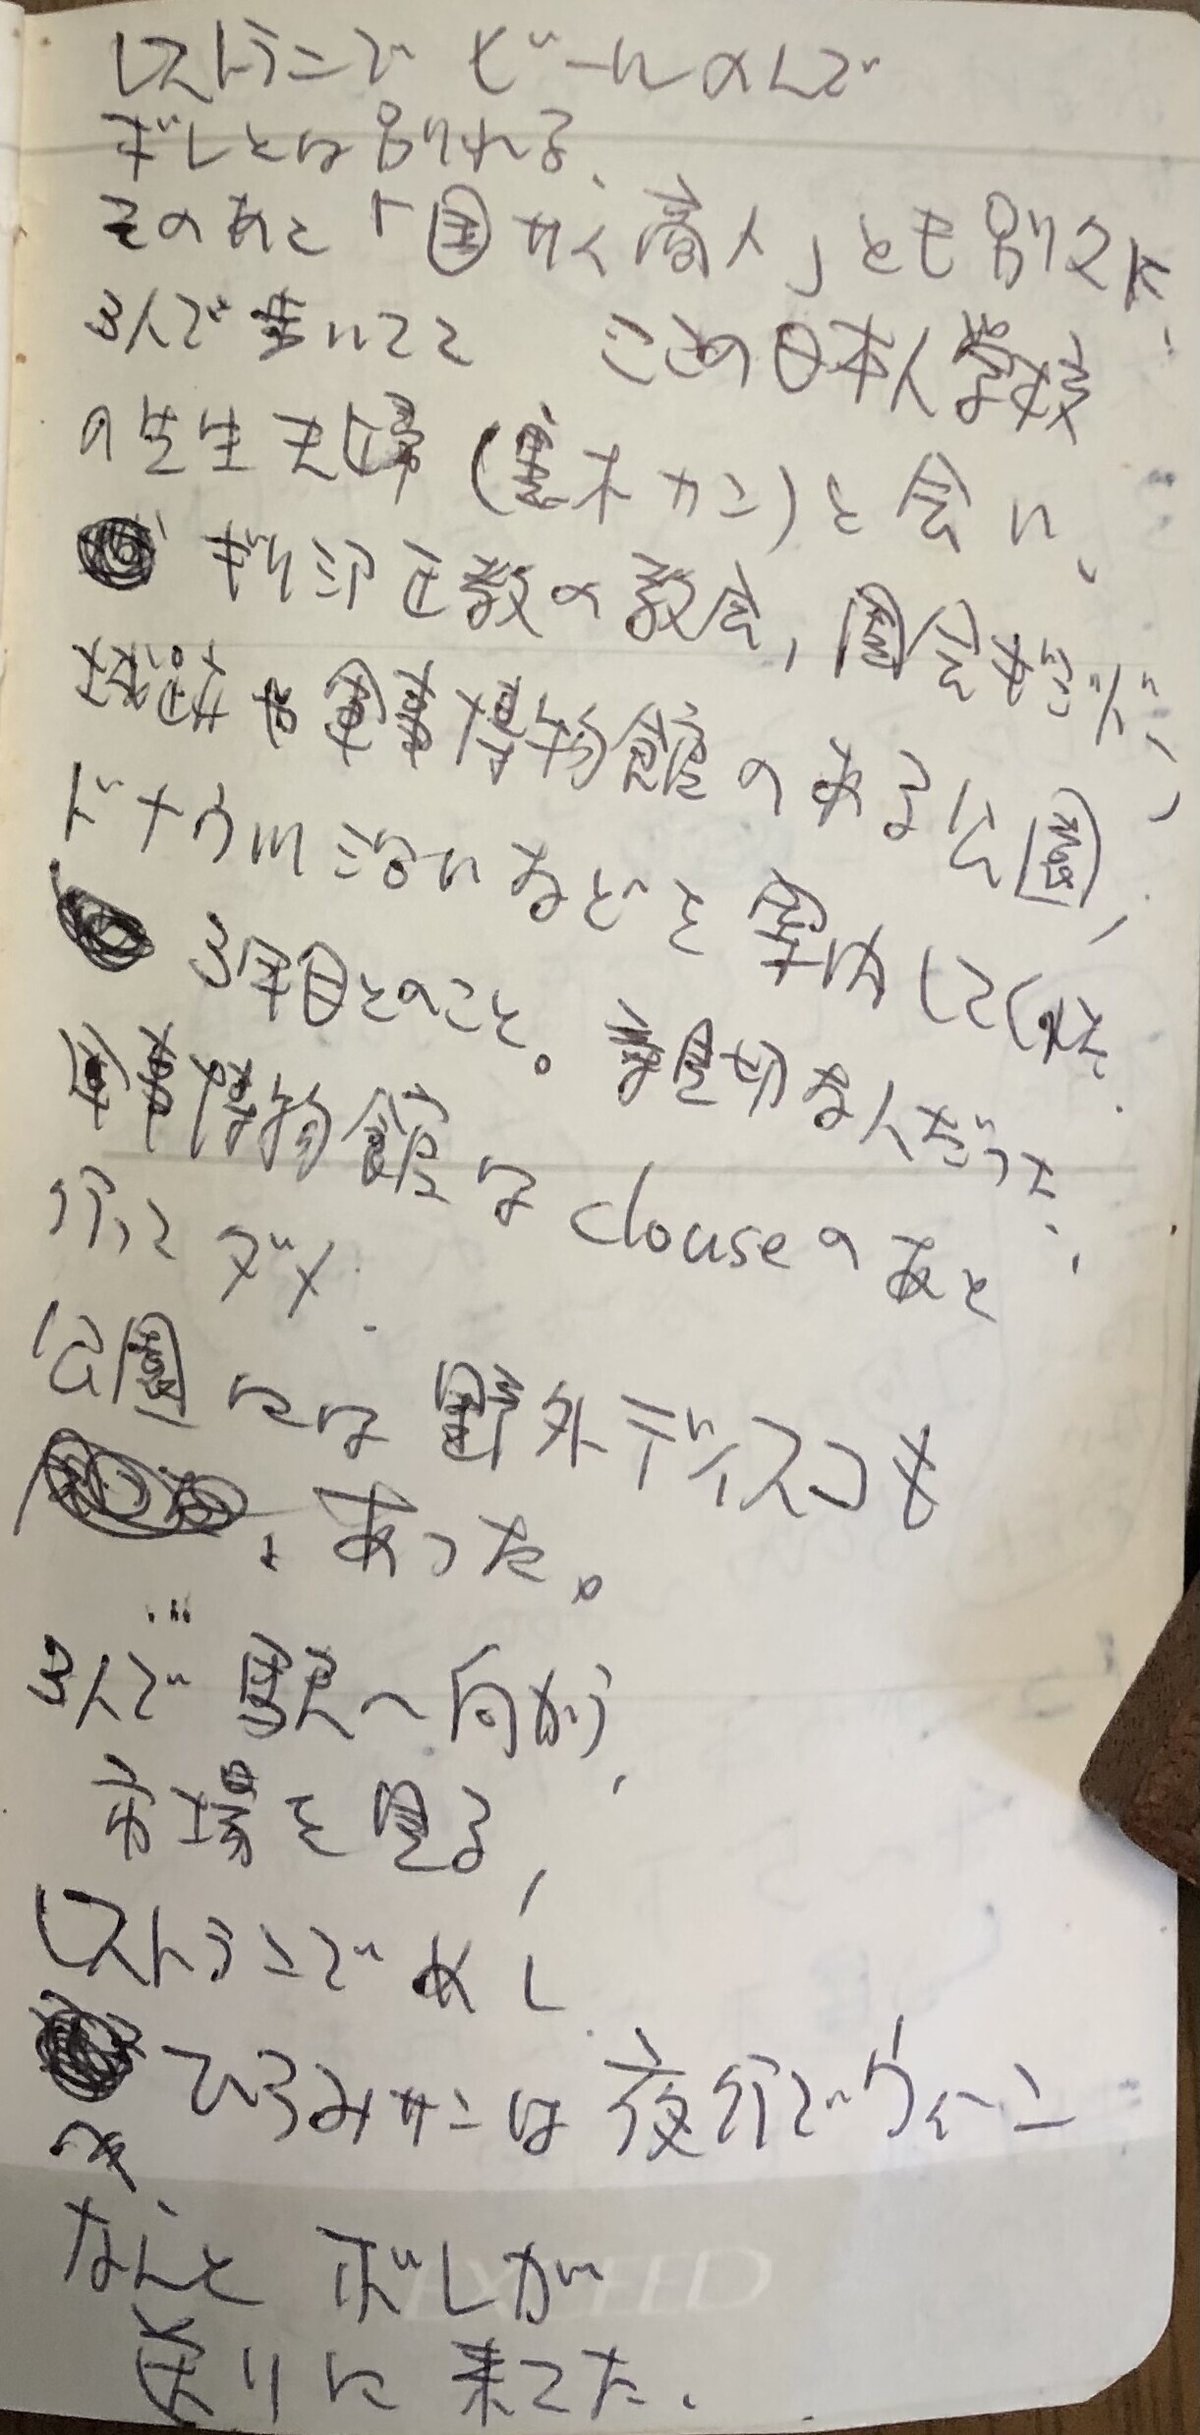 レストランで ビールのんで
ボレとは別れる、
そのあと「国サイ商人」とも別れた、
3人で歩いてて ここの日本人学校
の先生夫婦（黒木サン）と会い、
ギリシア正教の教会，国会など，
遊園地や軍事博物館のある公園，
ドナウ川沿いなどを案内してくれた．
3年目とのこと。親切な人だった．
軍事博物館は clouseのあと
行って ダメ．
公園には野外ディスコも
あった。
3人で駅へ向かう，
市場を見る，
レストランでめし
ひろみサンは夜行でウィーン
へ、
なんと ボレが
送りに来てた．